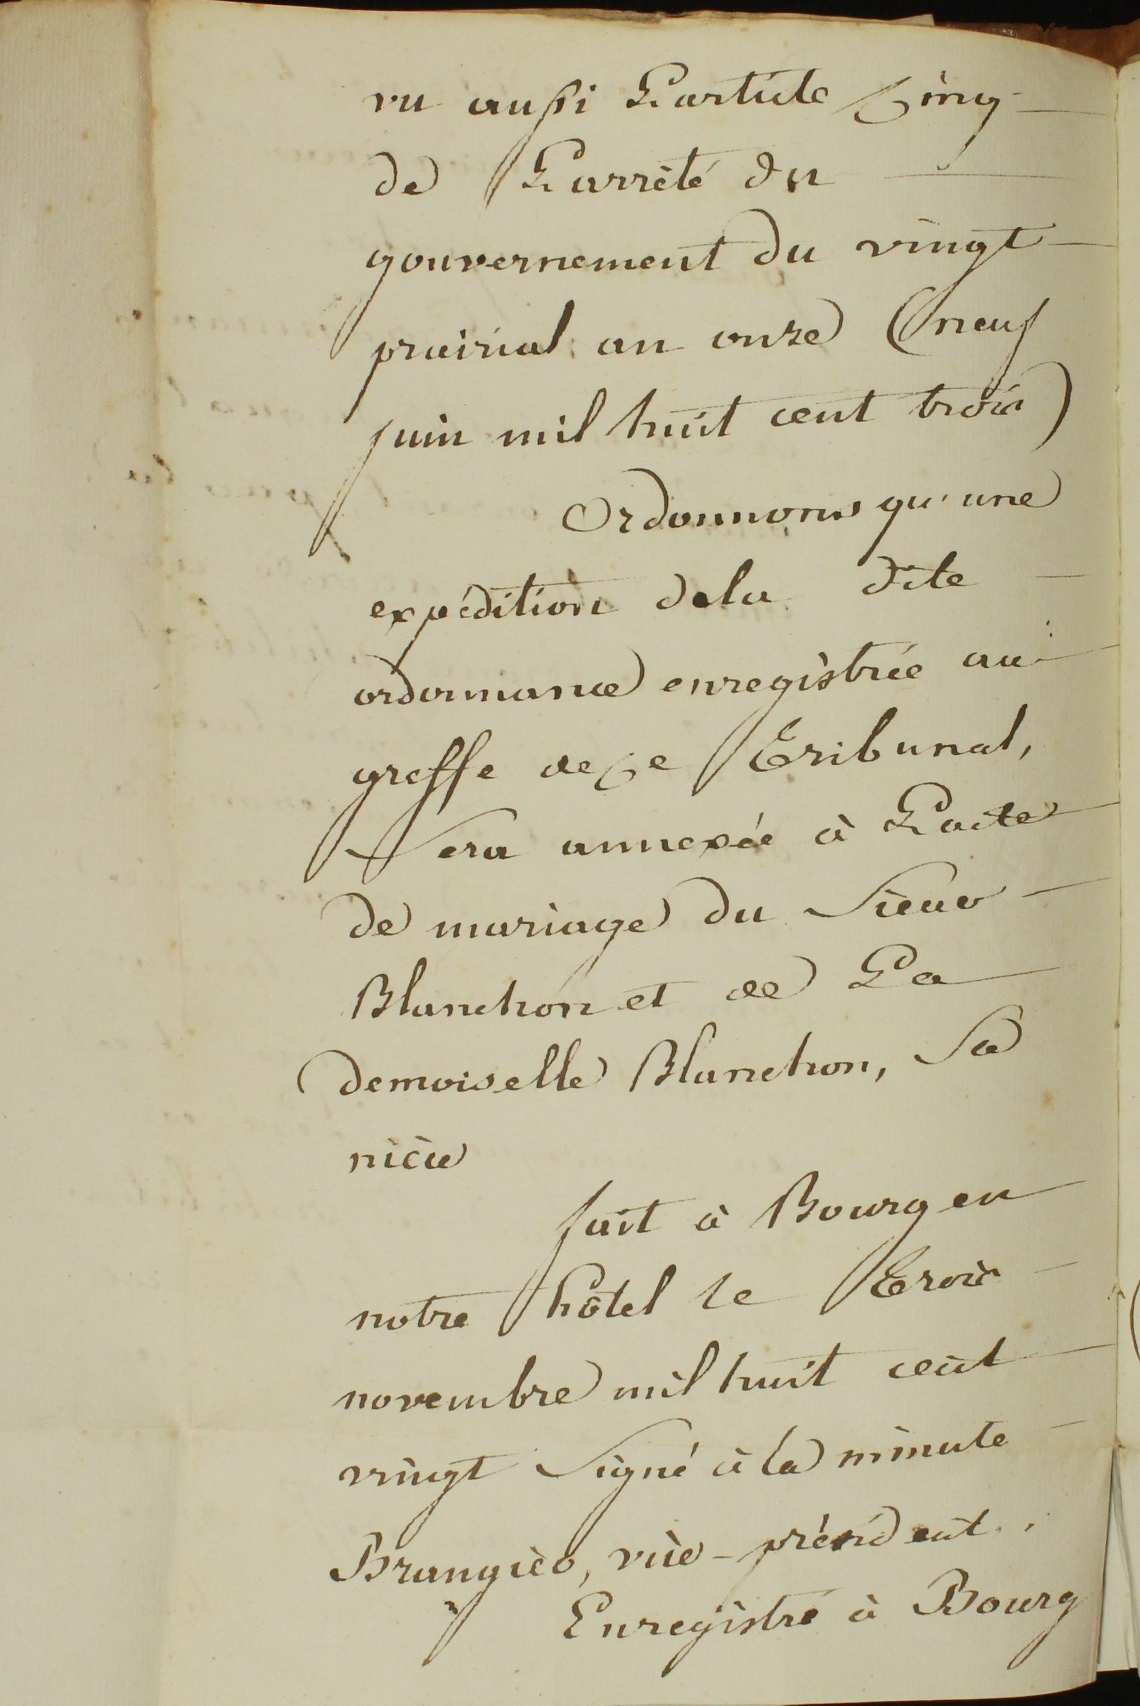 vu aussi L'article Cinq
de L'arrêté du
gouvernement du vingt
prairial an onze (neuf
juin mil huit cent trois)
Ordonnons qu'une
expédition dela dite
ordonnance enregistrée au
greffe de Ce Tribunal,
Sera annexée à L'acte
de mariage du Sieur
Blanchon et de La
demoiselle Blanchon, Sa
nièce
fait à Bourg en
notre hôtel le Trois
novembre mil huit cent
vingt Signé à la minute
Brangier, vice-président.
Enregistré à Bourg